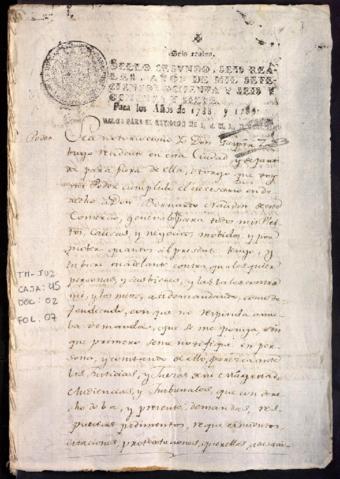 Seis reales.
SELLO SEGUNDO, SEIS REA-
LES, AÑOS DE MIL SETE-
CIENTOS OCHENTA Y SEIS Y
OCHENTA Y SIETE.
Para los Años de 1788 y 1789
VALGA PARA EL REYNADO DE S. M. EL
Poder
Sea notorio como Yo Don
residente en esta Ciudad, y de
para fuera de ella, otorgo que doy
mi Poder cumplido el necesario en de
recho a Don Bernardo
Comercio, general para todos mis Pley
tos, causas, y negocios movidos, y por
mover quantos al presente tengo, y
tubiere en adelante contra qualesquier
personas, y sus bienes, y las tales contra
mi, y los mios, así demandando, como de
fendiendo, con que no responda a nue
ba demanda, que se me ponga, sin
que primero se me notifique en per
sona, y constando de ello, parezca ante
las Justicias, y Jueces de su Magestad
Audiencias, y Tribunales, que con dere
cho deba, y presente demandas, res
puestas pedimentos, requerimientos
citaciones, protestaciones, querellas,
TH-JU2
CAJA: 45
DOC: 02
FOL: 07